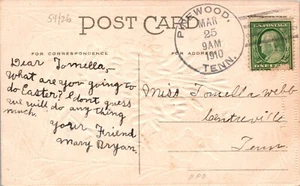 59/26
POST CARD
FOR CORRESPONDENCE
ADDRESS
PINEWOOD,
MAR
25
9AM
1910
TENN.
Dear Tomella,
What are you going to
do Easter? I dont guess
we will do any thing
much.
Your Friend
Mary Bryan.
Miss Tomella Webb
Centreville
Tenn